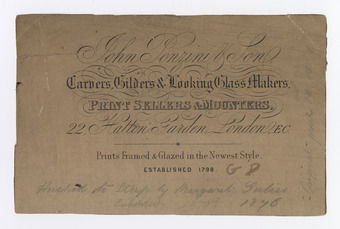 John Ponzini & Son,
Carvers, Gilders & Looking Glass Makers,
PRINT SELLERS & MOUNTERS,
22, Hatton Garden, London, E.C.
Prints Framed & Glazed in the Newest Style.
ESTABLISHED 1798.
G 8
to by Margaret
1876